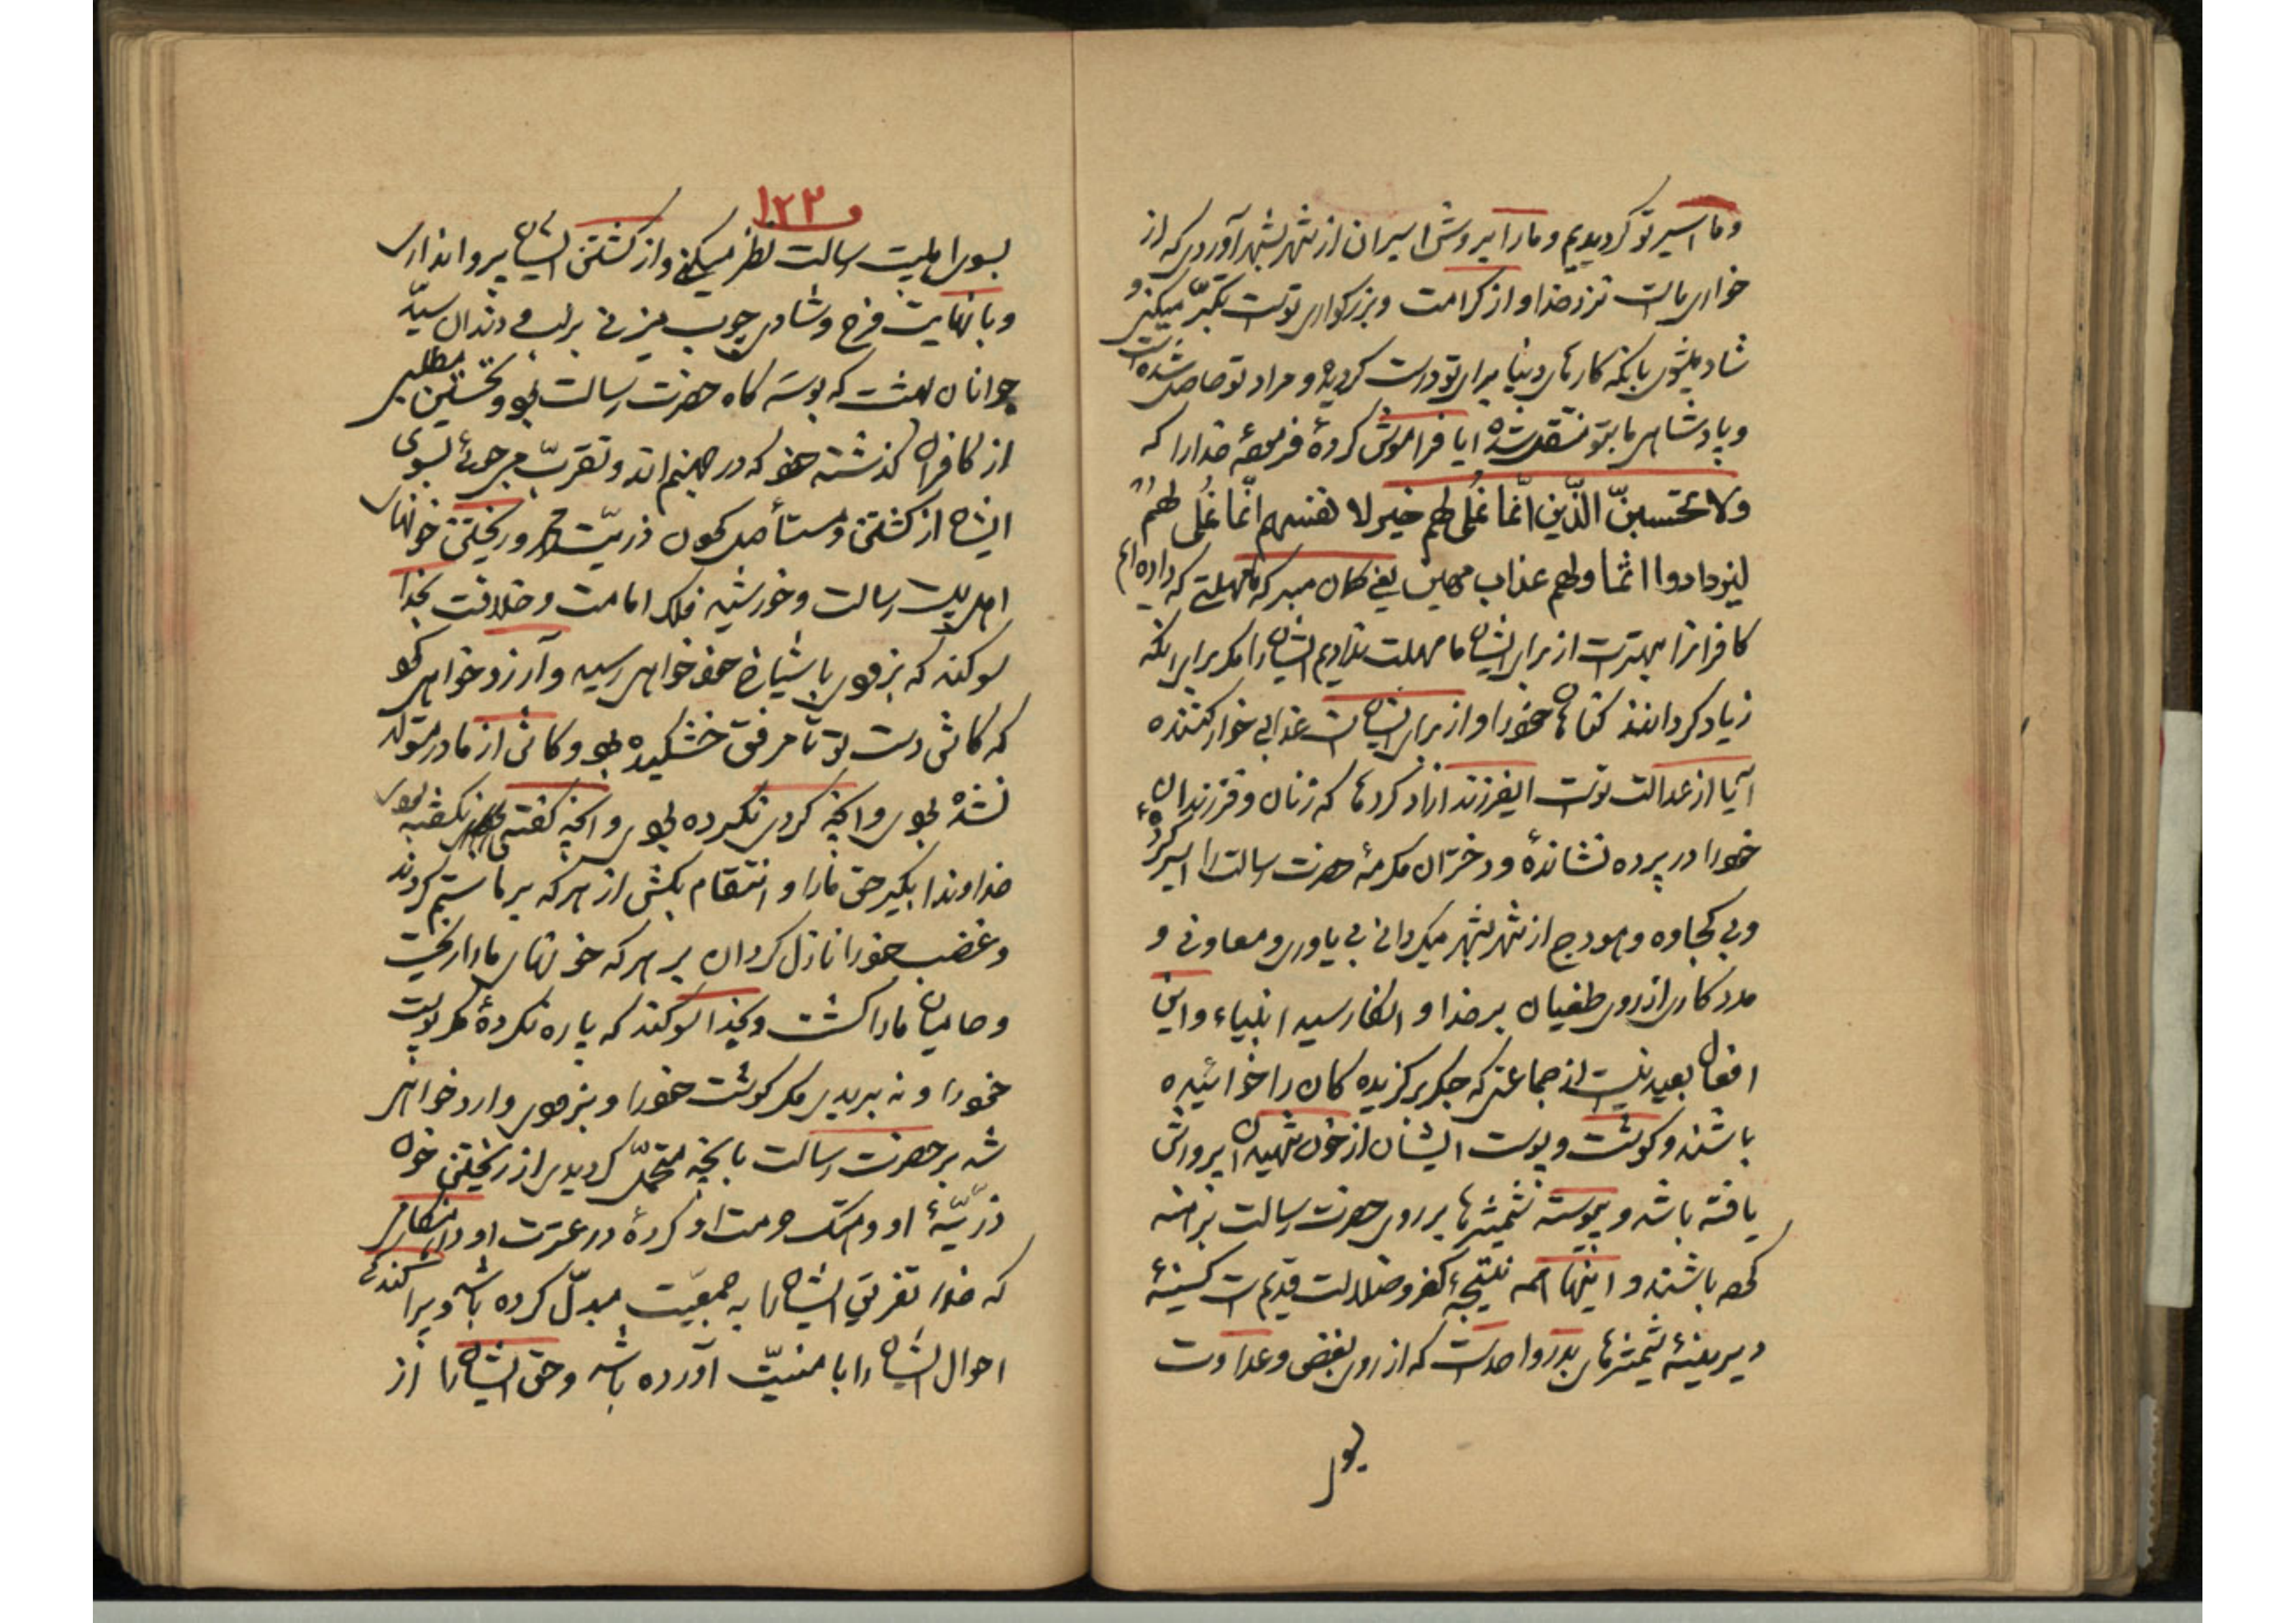 وما اسیر تو کردیدیم و مارا بروش اسیران از شهر بشهر آوردی که از
خواری ماست نزد خدا و از کرامت و بزرکواری تو است تکبّر میکنی و
شاد میشوی بانکه کارهای دنیا برای تو درست کردیده و مراد تو حاصل شده است
و پادشاهی ما بتو منتقل شده ایا فراموش کردهٔ فرمودهٔ خدارا که
ولا تحسبنّ الذّین انّما نملی لهم خیر لا نفسهم انّما نملی لهم
لیزدادوا اثما ولهم عذاب مهین یعنی کمان مبر که مهلتی که داده ایم
کافرانرا بهتر است از برای ایشان ما مهلت ندادیم ایشانرا مکر برای انکه
زیاد کردانند کناهان خودرا و از برای ایشان است عذابی خوار کننده
آیا از عدالت تو است ایفرزند ازاد کردها که زنان و فرزندان
خودرا در پرده نشاندهٔ و دختران مکرمهٔ حضرت رسالت را اسیر کردهٔ
و بی کجاوه و هودج از شهر بشهر میکردانی بی یاوری و معاونی و
مدد کاری از روی طغیان بر خدا و انکار سید انبیاء و این
افعال بعید نیست از جماعتی که جکر برکزیده کان را خوائیده
باشند و کوشت و پوست ایشان از خون شهیدان پرورش
یافته باشد و پیوسته شمشیرها بر روی حضرت رسالت برهنه
کرده باشند و اینها همه نتیجهٔ کفر و ضلالت قدیم است کسینهٔ
دیرینهٔ شمشیرهای بدر و احد است که از روی بغض و عداوت
بسوی
۱۲۳
بسوی اهلبیت رسالت نظر میکنی و از کشتن ایشان پروا نداری
و با نهایت فرح و شادی چوب میزنی بر لب و دندان سیّد
جوانان بهشت که بوسه کاه حضرت رسالت بود و تحسین میطلبی
از کافران کذشته خود که در جهنم اند و تقرّب میجوئی بسوی
ایشان از کشتن و مستأصل کردن ذریّت محمد و ریختن خونهای
اهل بیت رسالت و خورشید فلک امامت و خلافت بخدا
سوکند که بزودی بایشان خود خواهی رسید و آرزو خواهی کرد
که کاش دست تو تا مرفق خشکیده بود و کاش از مادر متولد
نشده بودی و انچه کردی نکرده بودی و انچه کفتی نکفته بودی
خداوندا بکیر حق مارا و انتقام بکش از هر که بر ما ستم کردند
و غضب خودرا نازل کردان بر هر که خونهای مارا ریخت
و حامیان مارا کشت و بخدا سوکند که پاره نکردهٔ مکر پوست
خودرا و نه بریدی مکر کوشت خودرا و بزودی وارد خواهی
شد بر حضرت رسالت بانچه متحمّل کردیدی از ریختن خون
ذرّیّهٔ او و هتک حرمت او کردهٔ در عترت او در هنکامی
که خدا تفریق ایشانرا به جمعیّت مبدّل کرده باشد و پراکندکی
احوال ایشان را بامنیّت آورده باشد و حق ایشانرا از